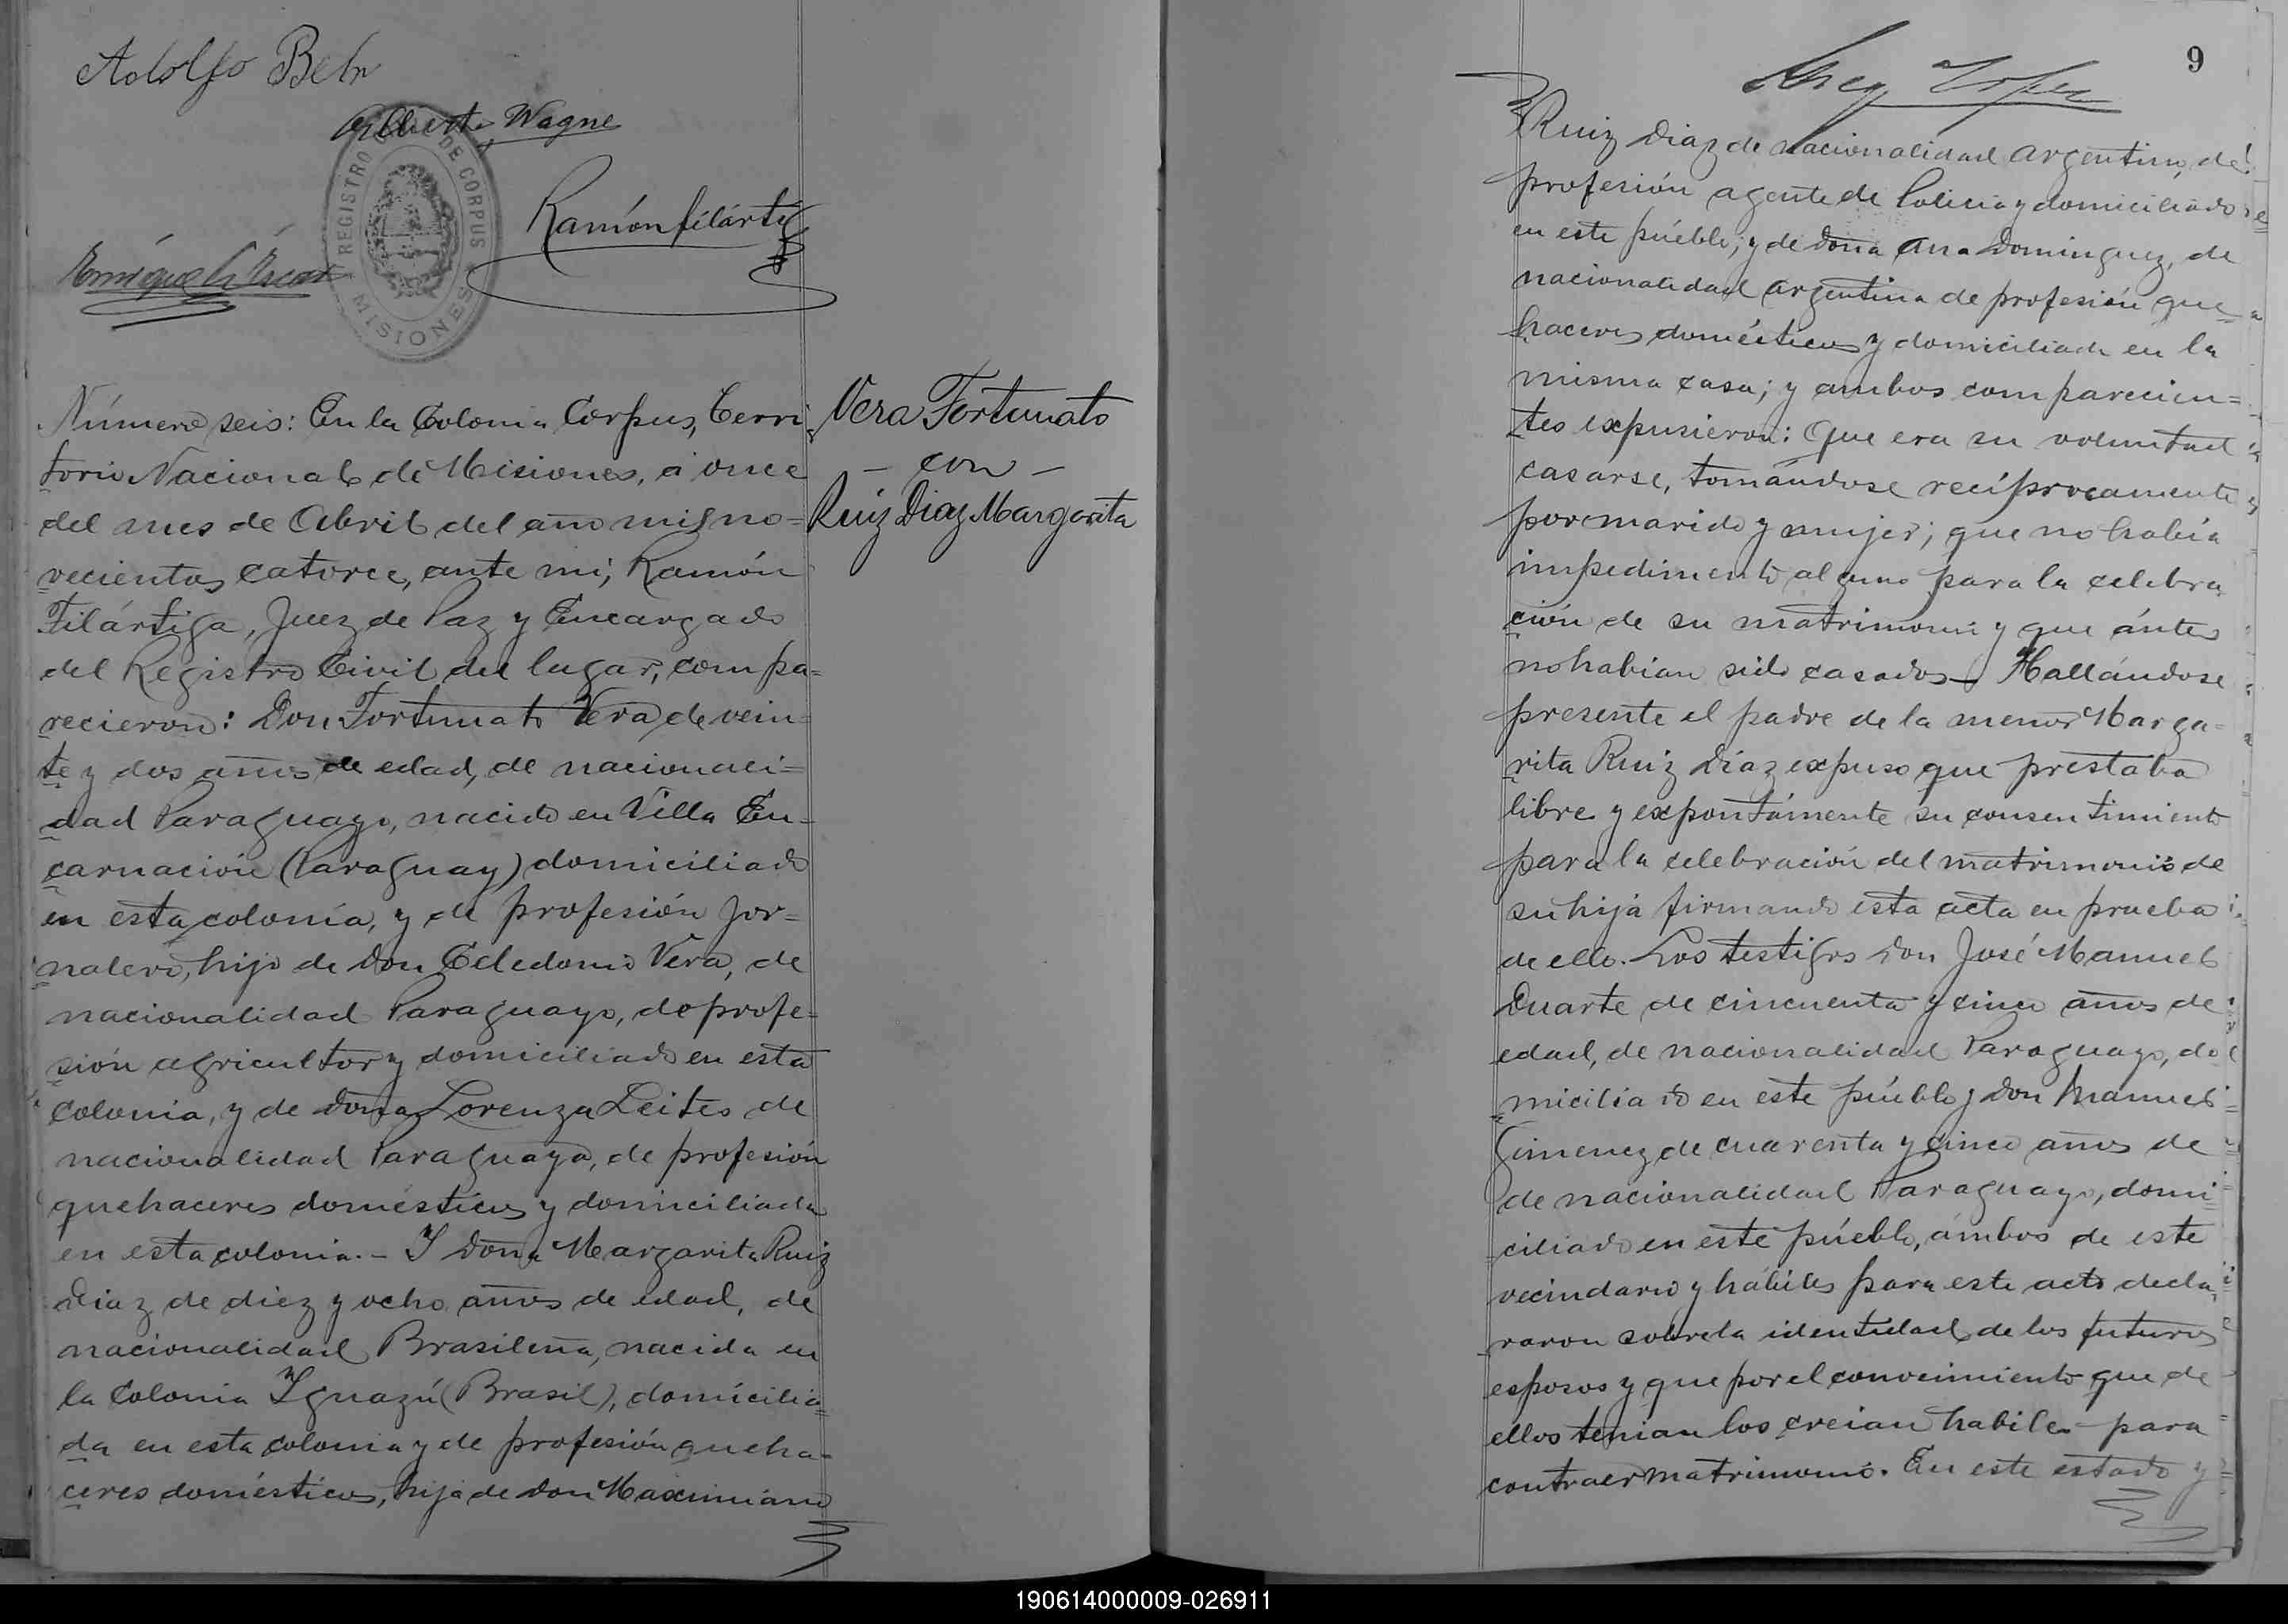 Adolfo Behr
Alberto Wagne
REGISTRO CIVIL DE CORPUS
MISIONES
Ramón filártiga
Vera Fortunato
- con -
Ruiz Diaz Margarita
Número seis: En la Colonia Corpus, Terri
torio Nacional de Misiones, á once
del mes de Abril del año mil no=
vecientos catorce, ante mi, Ramón
Filártiga, Juez de Paz y Encargado
del Registro Civil del lugar, compa=
recieron: Don Fortunato Vera de vein=
te y dos años de edad, de nacionali=
dad Paraguayo, nacido en Villa En=
carnación (Paraguay) domiciliado
en esta colonia, y de profesión jor=
nalero, hijo de don Celedonio Vera, de
nacionalidad Paraguayo, de profe=
sión agricultor y domiciliado en esta
colonia, y de doña Lorenza Leites de
nacionalidad Paraguaya, de profesión
quehaceres domésticos y domiciliada
en esta colonia.- Y doña Margarita Ruiz
Diaz de diez y ocho años de edad, de
nacionalidad Brasileña, nacida en
la Colonia Yguazú (Brasil), domicilia=
da en esta colonia y de profesión queha=
ceres domésticos, hija de don Maximiano
9
Ruiz Diaz de nacionalidad argentino, de
profesión agente de Policia y domiciliado
en este púeblo; y de doña Ana Dominguez, de
nacionalidad argentina de profesión que
haceres domésticos y domiciliada en la
misma casa; y ambos comparecien=
tes expusieron: Que era su voluntad
casarse, tomándose recíprocamente
por marido y mujer; que no había
impedimento alguno para la celebra
ción de su matrimonio y que ántes
no habian sido casados- Hallándose
presente el padre de la menor Marga=
rita Ruiz Díaz expuso que prestaba
libre y expontámente su consentimiento
para la celebración del matrimonio de
su hija firmando esta acta en prueba
de ello. Los testigos don José Manuel
Duarte de cincuenta y cinco años de
edad, de nacionalidad Paraguayo, do
miciliado en este púeblo y don Manuel
Gimenez de cuarenta y cinco años de
de nacionalidad Paraguayo, domi
ciliado en este púeblo, ámbos de este
vecindario y hábiles para este acto decla
raron sobre la identidad de los futuros
esposos y que por el conocimiento que de
ellos tenian los creian habiles para
contraer matrimonio. En este estado y
190614000009-026911